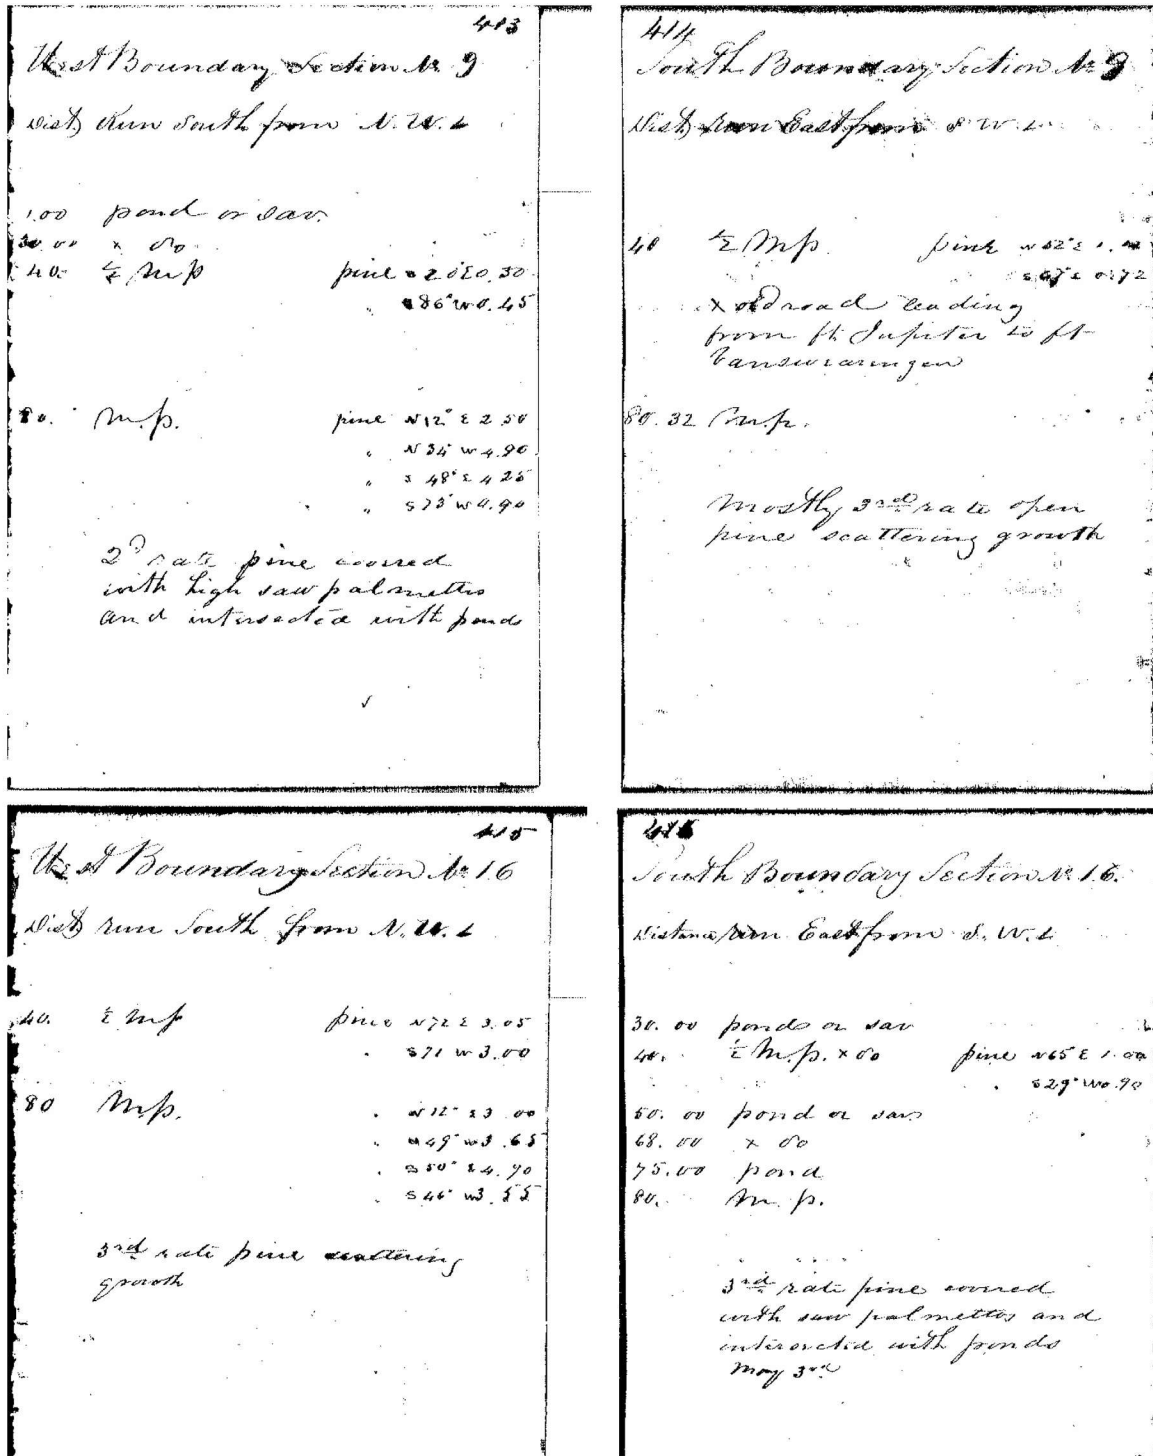 413
West Boundary Section No 9
Dist run South from N.W.
1.00 pond or sav.
30.00 x do
40. ½ M.P pine 20 E 0.30
" S 86° W 0.45
80. M.P. pine N 12° E 2.50
" N 34° W 4.90
" S 48° E 4.25
" S 73° W 0.90
2d rate pine covered
with high saw palmetto
and intersected with ponds
414
South Boundary Section No 9
Dist run East from S.W.
40 ½ M.P. pine N 52° E
S 67° E 0.72
x old road leading
from ft Jupiter to ft
Vanswearingen
80.32 M.P.
Mostly 3rd rate open
pine scattering growth
415
West Boundary Section No 16
Dist run South from N.W.
40. ½ M.P pine N 72 E 3.05
" S 71 W 3.00
80 M.P. " N 12° E 3.00
" N 49° W 3.65
" S 50° E 4.70
" S 46° W 3.55
3rd rate pine scattering
growth
416
South Boundary Section No 16.
Distance run East from S.W.
30.00 ponds or sav
40. ½ M.P. x do pine N 65 E 1.00
" S 29° W 0.90
50.00 pond or sav
68.00 x do
75.00 pond
80. M.P.
3rd rate pine covered
with saw palmettos and
intersected with ponds
May 3rd